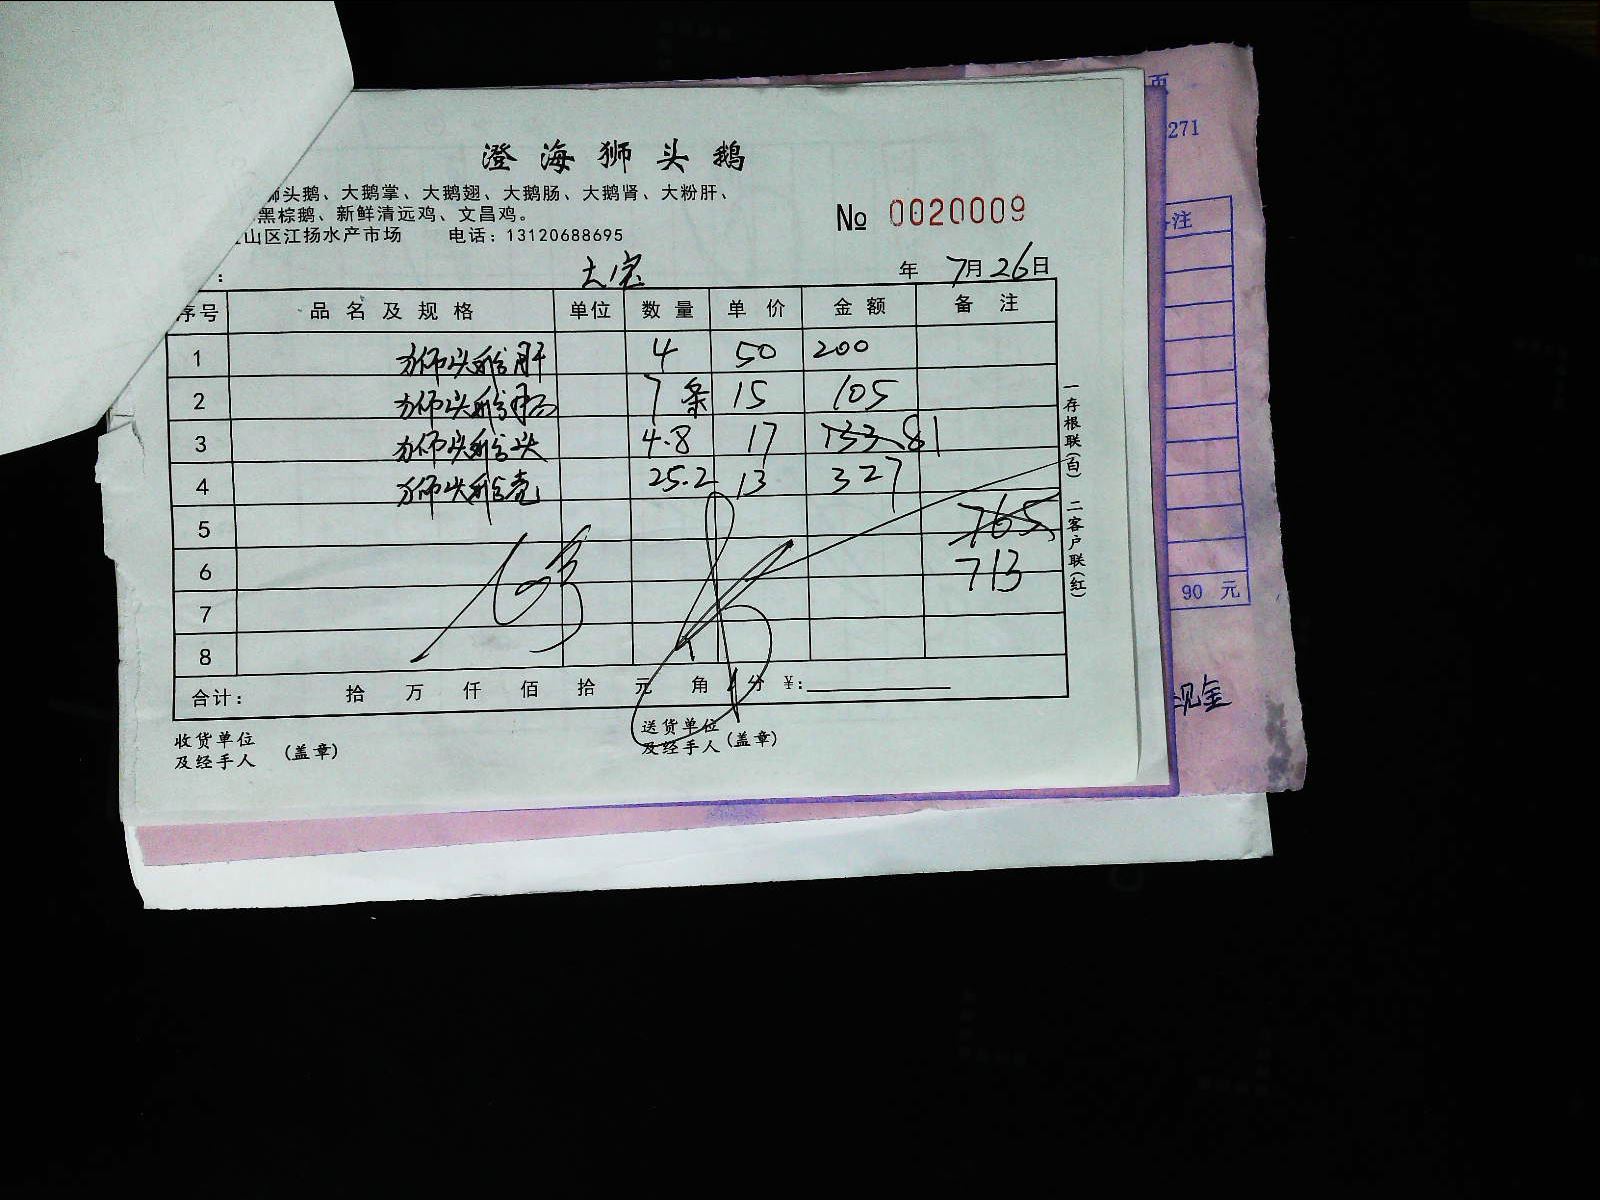 澄海狮头鹅
狮头鹅、大鹅掌、大鹅翅、大鹅肠、大鹅肾、大粉肝、
黑棕鹅、新鲜清远鸡、文昌鸡。
山区江扬水产市场 电话：13120688695
№ 0020009
： 大宝 年 7月26日
序号 品名及规格 单位 数量 单价 金额 备注
1 狮头鹅肝 4 50 200
2 狮头鹅肠 7条 15 105
3 狮头鹅头 4.8 17 133 81
4 狮头鹅壳 25.2 13 327
5 765
6 713
7
8
合计： 拾 万 仟 佰 拾 元 角 分 ￥：
收货单位
及经手人 (盖章)
送货单位
及经手人 (盖章)
一存根联(白) 二客户联(红)
页
271
注
90 元
现金